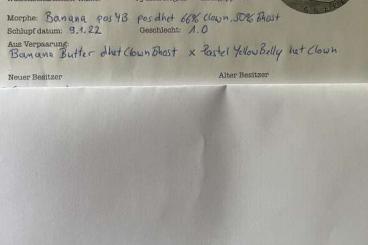 Morphe: Banana pos YB pos dhet 66% Clown, 50% Ghost
Schlupf datum: 9.1.22 Geschlecht: 1.0
Aus Verpaarung:
Banana Butter dhet Clown Ghost x Pastel Yellow Belly het Clown
Neuer Besitzer Alter Besitzer